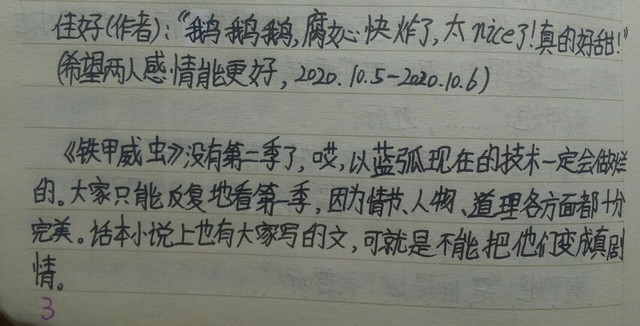 佳好(作者):“鹅鹅鹅,腐女心快炸了,太nice了!真的好甜!”
(希望两人感情能更好,2020.10.5-2020.10.6)
《铁甲威虫》没有第二季了,哎,以蓝弧现在的技术一定会做烂
的。大家只能反复地看第一季,因为情节、人物、道理各方面都十分
完美。话本小说上也有大家写的文,可就是不能把他们变成真剧
情。
3